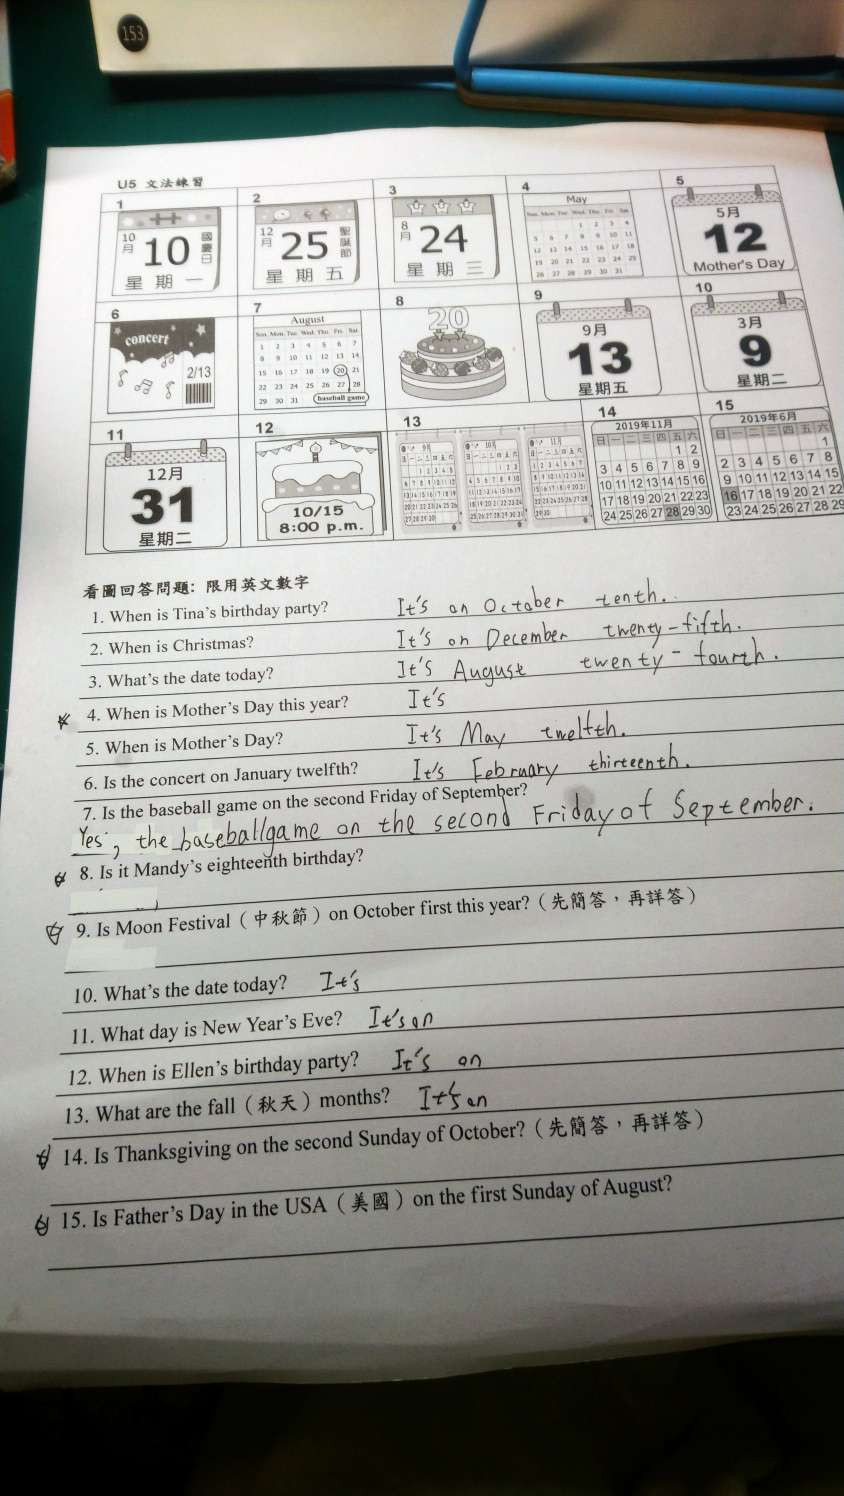 153
U5 文法練習
1
10月
10
國慶日
星期一
2
12月
25
聖誕節
星期五
3
8月
24
星期三
4
May
Sun. Mon. Tue. Wed. Thu. Fri. Sat.
1 2 3 4
5 6 7 8 9 10 11
12 13 14 15 16 17 18
19 20 21 22 23 24 25
26 27 28 29 30 31
5
5月
12
Mother's Day
6
concert
2/13
7
August
Sun. Mon. Tue. Wed. Thu. Fri. Sat.
1 2 3 4 5 6 7
8 9 10 11 12 13 14
15 16 17 18 19 20 21
22 23 24 25 26 27 28
29 30 31
baseball game
8
20
9
9月
13
星期五
10
3月
9
星期二
11
12月
31
星期二
12
10/15
8:00 p.m.
13
9月
10月
11月
14
2019年11月
日 一 二 三 四 五 六
1 2
3 4 5 6 7 8 9
10 11 12 13 14 15 16
17 18 19 20 21 22 23
24 25 26 27 28 29 30
15
2019年6月
日 一 二 三 四 五 六
1
2 3 4 5 6 7 8
9 10 11 12 13 14 15
16 17 18 19 20 21 22
23 24 25 26 27 28 29
看圖回答問題: 限用英文數字
1. When is Tina's birthday party? It's on October tenth.
2. When is Christmas? It's on December twenty-fifth.
3. What's the date today? It's August twenty-fourth.
4. When is Mother's Day this year? It's
5. When is Mother's Day? It's May twelfth.
6. Is the concert on January twelfth? It's February thirteenth.
7. Is the baseball game on the second Friday of September?
Yes, the baseballgame on the second Friday of September.
8. Is it Mandy's eighteenth birthday?
9. Is Moon Festival（中秋節）on October first this year?（先簡答，再詳答）
10. What's the date today? It's
11. What day is New Year's Eve? It's on
12. When is Ellen's birthday party? It's on
13. What are the fall（秋天）months? It's on
14. Is Thanksgiving on the second Sunday of October?（先簡答，再詳答）
15. Is Father's Day in the USA（美國）on the first Sunday of August?